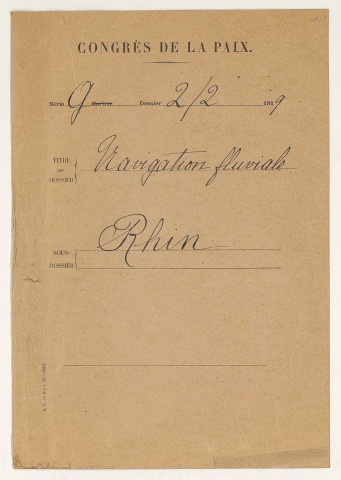 CONGRÈS DE LA PAIX.
Série G Carton Dossier 2/2 1919
TITRE
DU
DOSSIER
Navigation fluviale
SOUS-
DOSSIER
Rhin